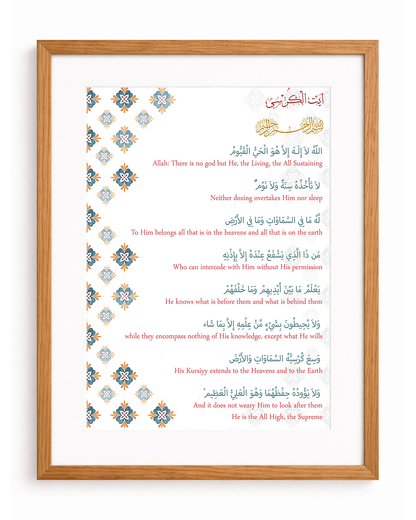 آيَت الْكُرْسِيّ
بسم الله الرحمن الرحيم
اللَّهُ لَا إِلَٰهَ إِلَّا هُوَ الْحَيُّ الْقَيُّومُ
Allah: There is no god but He, the Living, the All Sustaining
لَا تَأْخُذُهُ سِنَةٌ وَلَا نَوْمٌ
Neither dozing overtakes Him nor sleep
لَّهُ مَا فِي السَّمَاوَاتِ وَمَا فِي الأَرْضِ
To Him belongs all that is in the heavens and all that is on the earth
مَن ذَا الَّذِي يَشْفَعُ عِنْدَهُ إِلاَّ بِإِذْنِهِ
Who can intercede with Him without His permission
يَعْلَمُ مَا بَيْنَ أَيْدِيهِمْ وَمَا خَلْفَهُمْ
He knows what is before them and what is behind them
وَلاَ يُحِيطُونَ بِشَيْءٍ مِّنْ عِلْمِهِ إِلاَّ بِمَا شَاء
while they encompass nothing of His knowledge, except what He wills
وَسِعَ كُرْسِيُّهُ السَّمَاوَاتِ وَالأَرْضَ
His Kursiyy extends to the Heavens and to the Earth
وَلاَ يَؤُودُهُ حِفْظُهُمَا وَهُوَ الْعَلِيُّ الْعَظِيمُ
And it does not weary Him to look after them
He is the All High, the Supreme